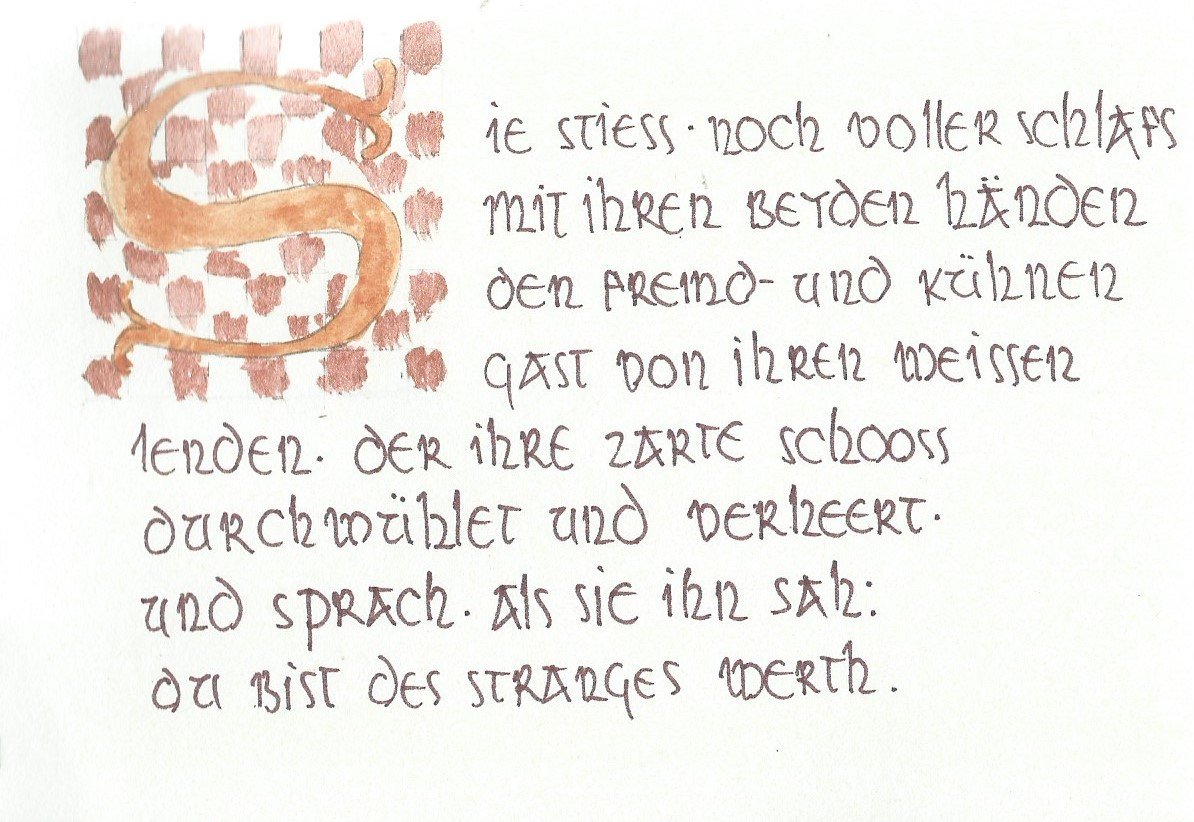 Sie stiess · noch voller schlafs
mit ihren beyden händen
den fremd- und kühnen
gast von ihren weissen
lenden · der ihre zarte schooss
durchwühlet und verheert ·
und sprach · als sie ihn sah:
du bist des stranges werth .